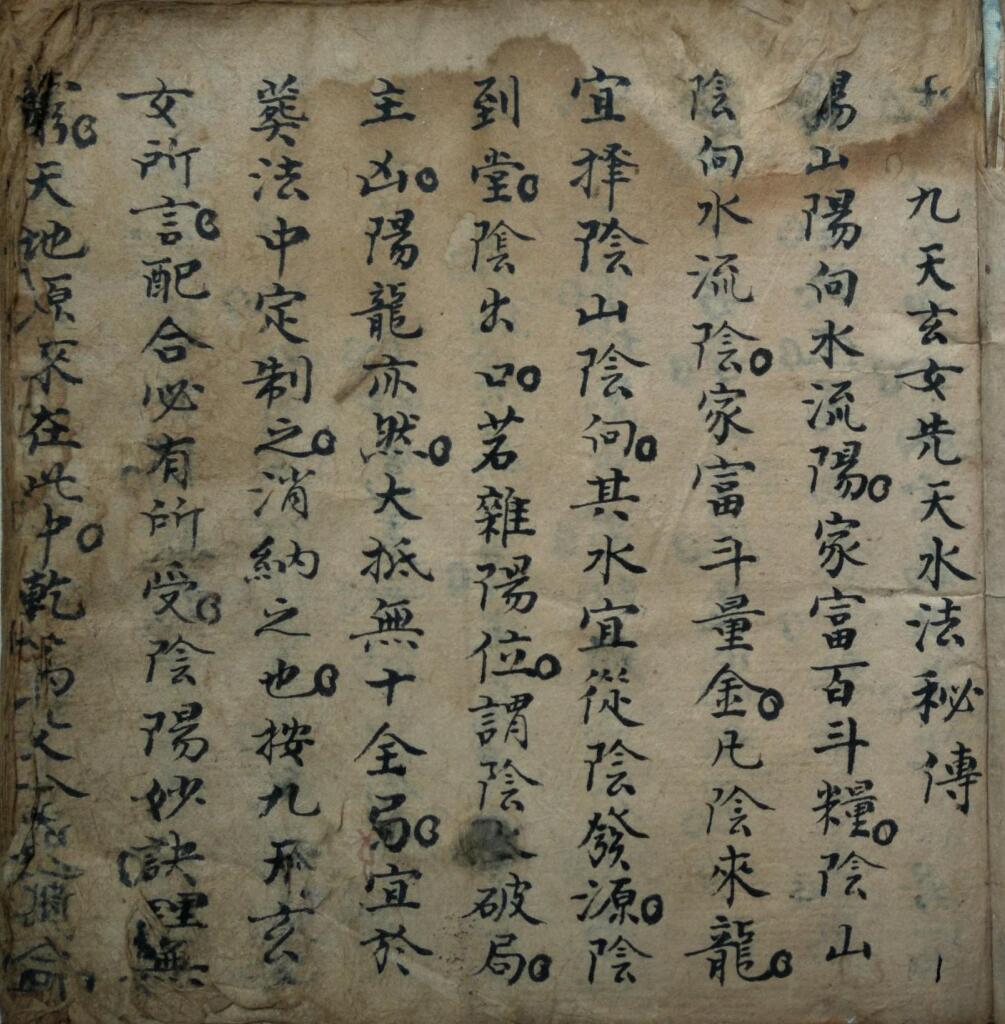 九天玄女先天水法秘傳
陽山陽向水流陽。家富百斗糧。陰山
陰向水流陰。家富斗量金。凡陰來龍。
宜擇陰山陰向。其水宜從陰發源。陰
到堂。陰出口。若雜陽位。謂陰破局。
主凶。陽龍亦然。大抵無十全局。宜於
葬法中定制之。消納之也。按九天玄
女所言。配合必有所受。陰陽妙訣理無
窮。天地原來在此中。乾